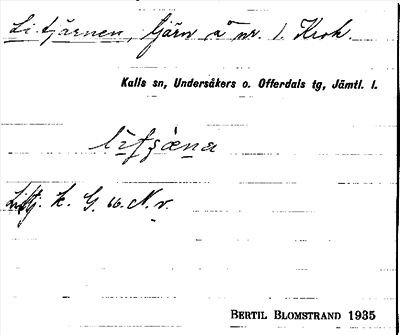 Li-tjärnen, tjärn å nr. 1. Krok.
Kalls sn, Undersåkers o. Offerdals tg, Jämtl. l.
K. G. 66. N. v.
BERTIL BLOMSTRAND 1935